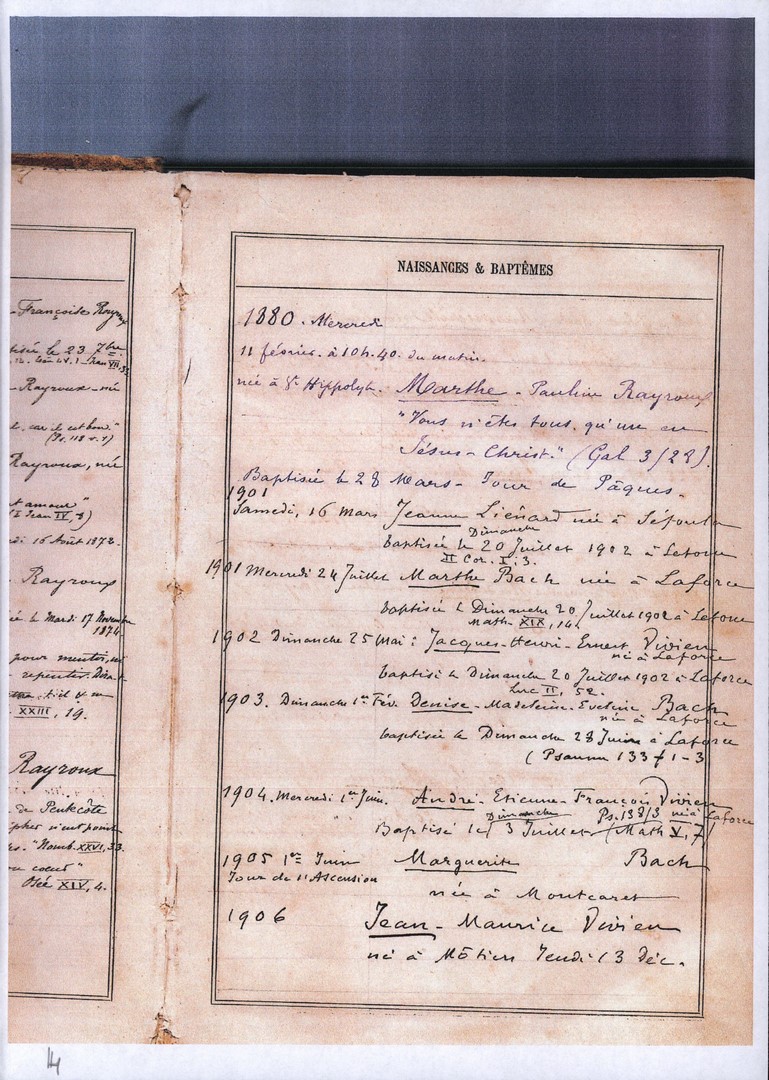 - Françoise Rayroux
le 23 7bre
- Rayroux - né
(Ps. 118 v. 1)
Rayroux, né
(I Jean IV, 8)
16 Août 1872.
Rayroux
le Mardi 17 Novembre
1874
pour mentir, ni
repentir.
XXIII, 19.
Rayroux
de Pentecôte
n'ont point
"Nomb. XXVI, 33.
cœur"
Osée XIV, 4.
NAISSANCES & BAPTÊMES
1880. Mercredi
11 février à 10h. 40. du matin.
née à St Hippolyte. Marthe - Pauline Rayroux
"Vous n'êtes tous qu'un en
Jésus-Christ." (Gal 3/28).
Baptisée le 28 Mars - Jour de Pâques.
1901
Samedi, 16 Mars Jeanne Liénard née à
Dimanche
baptisée le 20 Juillet 1902 à Laforce
II Cor. I. 3.
1901 Mercredi 24 Juillet Marthe Bach née à Laforce
baptisée le Dimanche 20 Juillet 1902 à Laforce
Math. XIX, 14.
1902 Dimanche 25 Mai: Jacques-Henri-Ernest Vivien
né à Laforce
baptisé le Dimanche 20 Juillet 1902 à Laforce
Luc II, 52.
1903. Dimanche 1er Fév. Denise-Madeleine-Eveline Bach
née à Laforce
baptisée le Dimanche 28 Juin à Laforce
(Psaume 133 v 1-3
1904. Mercredi 1er Juin. André-Etienne-François Vivien
Dimanche Ps. 138/3 né à Laforce
Baptisé le 3 Juillet (Math V, 7)
1905 1er Juin Marguerite Bach
Jour de l'Ascension
née à Montcaret
1906 Jean-Maurice Vivien
né à Môtiers Jeudi 13 Déc.
14